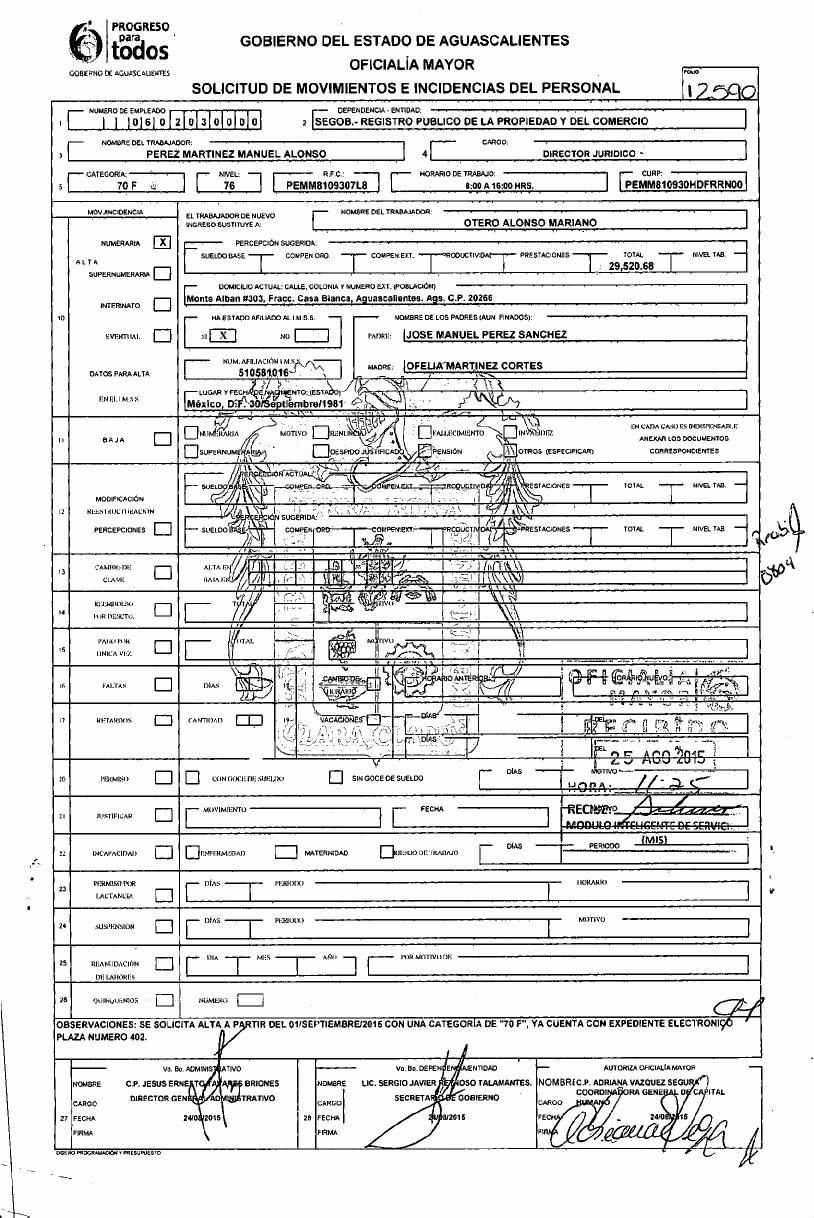 PROGRESO
para
todos
GOBIERNO DE AGUASCALIENTES
GOBIERNO DEL ESTADO DE AGUASCALIENTES
OFICIALÍA MAYOR
SOLICITUD DE MOVIMIENTOS E INCIDENCIAS DEL PERSONAL
FOLIO
12590
NUMERO DE EMPLEADO DEPENDENCIA - ENTIDAD:
1 0 6 0 2 0 3 0 0 0 0 2 SEGOB.- REGISTRO PUBLICO DE LA PROPIEDAD Y DEL COMERCIO
NOMBRE DEL TRABAJADOR: CARGO:
3 PEREZ MARTINEZ MANUEL ALONSO 4 DIRECTOR JURIDICO -
CATEGORÍA: NIVEL: R.F.C.: HORARIO DE TRABAJO: CURP:
5 70 F 76 PEMM8109307L8 8:00 A 16:00 HRS. PEMM810930HDFRRN00
MOV.INCIDENCIA EL TRABAJADOR DE NUEVO INGRESO SUSTITUYE A: NOMBRE DEL TRABAJADOR:
OTERO ALONSO MARIANO
NUMERARIA X PERCEPCIÓN SUGERIDA:
SUELDO BASE COMPEN.ORD. COMPEN.EXT. PRODUCTIVIDAD PRESTACIONES TOTAL NIVEL TAB.
ALTA
29,520.68
SUPERNUMERARIA
DOMICILIO ACTUAL: CALLE, COLONIA Y NUMERO EXT. (POBLACIÓN)
INTERNATO Monte Alban #303, Fracc. Casa Blanca, Aguascalientes. Ags. C.P. 20266
10 HA ESTADO AFILIADO AL I.M.S.S. NOMBRE DE LOS PADRES (AUN FINADOS):
EVENTUAL SI X NO PADRE: JOSE MANUEL PEREZ SANCHEZ
NUM. AFILIACIÓN I.M.S.S.
DATOS PARA ALTA 510581016 MADRE: OFELIA MARTINEZ CORTES
LUGAR Y FECHA DE NACIMIENTO: (ESTADO)
EN EL I.M.S.S México, D.F. 30/Septiembre/1981
11 BAJA NUMERARIA MOTIVO RENUNCIA FALLECIMIENTO INVALIDEZ EN CADA CASO ES INDISPENSABLE
ANEXAR LOS DOCUMENTOS
SUPERNUMERARIA DESPIDO JUSTIFICADO PENSIÓN OTROS (ESPECIFICAR) CORRESPONDIENTES
PERCEPCIÓN ACTUAL:
SUELDO BASE COMPEN. ORD. COMPEN.EXT. PRODUCTIVIDAD PRESTACIONES TOTAL NIVEL TAB.
MODIFICACIÓN
12 REESTRUCTURACIÓN PERCEPCIÓN SUGERIDA:
PERCEPCIONES SUELDO BASE COMPEN. ORD. COMPEN.EXT. PRODUCTIVIDAD PRESTACIONES TOTAL NIVEL TAB
13 CAMBIO DE CLAVE ALTA EN
BAJA EN
14 REEMBOLSO POR DESCTO. TOTAL MOTIVO
15 PAGO POR UNICA VEZ. TOTAL MOTIVO
16 FALTAS DÍAS 18 CAMBIO DE HORARIO HORARIO ANTERIOR HORARIO NUEVO
OFICIALIA
MAYOR
RECIBIDO
17 RETARDOS CANTIDAD 19 VACACIONES DÍAS DEL
DÍAS DEL AL
25 AGO 2015
20 PERMISO CON GOCE DE SUELDO SIN GOCE DE SUELDO DÍAS MOTIVO
HORA: 11:25
21 JUSTIFICAR MOVIMIENTO FECHA
MODULO INTELIGENTE DE SERVICI
(MIS)
22 INCAPACIDAD ENFERMEDAD MATERNIDAD RIESGO DE TRABAJO DÍAS PERIODO
23 PERMISO POR LACTANCIA DÍAS PERIODO HORARIO
24 SUSPENSIÓN DÍAS PERIODO MOTIVO
25 REANUDACIÓN DE LABORES DIA MES AÑO POR MOTIVO DE
26 QUINQUENIOS NUMERO
OBSERVACIONES: SE SOLICITA ALTA A PARTIR DEL 01/SEPTIEMBRE/2015 CON UNA CATEGORÍA DE "70 F", YA CUENTA CON EXPEDIENTE ELECTRONICO
PLAZA NUMERO 402.
Vo. Bo. ADMINISTRATIVO Vo. Bo. DEPENDENCIA/ENTIDAD AUTORIZA OFICIALÍA MAYOR
NOMBRE C.P. JESUS ERNESTO TAVARES BRIONES NOMBRE LIC. SERGIO JAVIER REYNOSO TALAMANTES. NOMBRE C.P. ADRIANA VAZQUEZ SEGURA
CARGO DIRECTOR GENERAL ADMINISTRATIVO CARGO SECRETARIO DE GOBIERNO CARGO COORDINADORA GENERAL DE CAPITAL HUMANO
27 FECHA 24/08/2015 28 FECHA 24/08/2015 FECHA 24/08/2015
FIRMA FIRMA FIRMA
DISEÑO PROGRAMACIÓN Y PRESUPUESTO